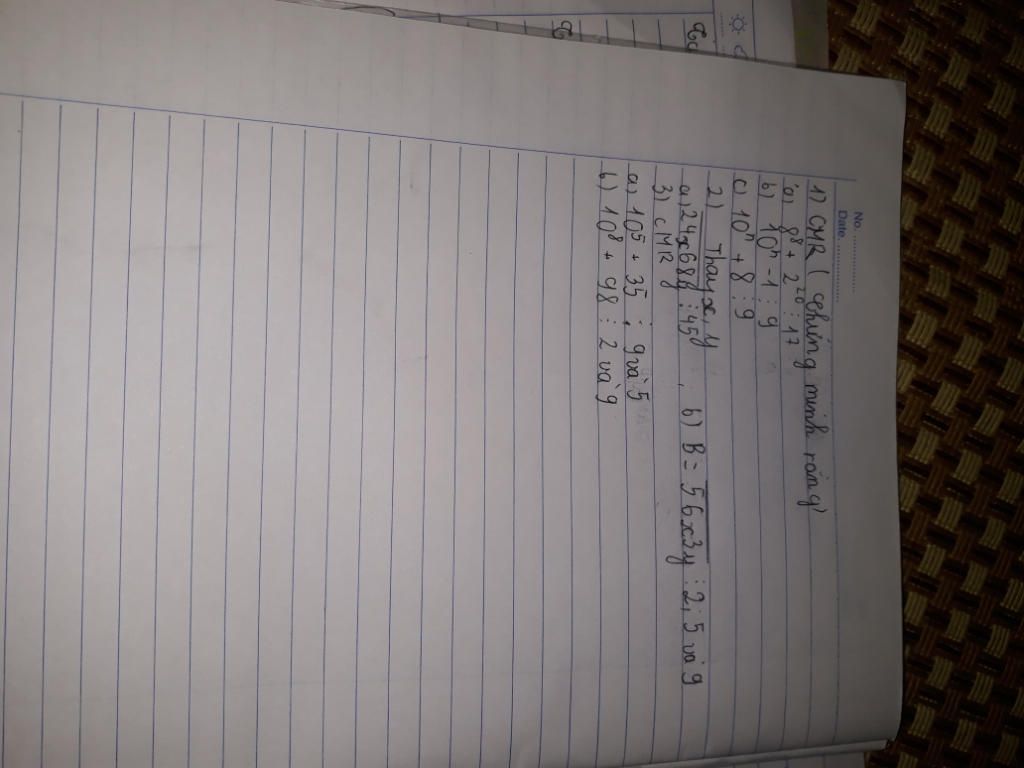 No. ............
Date. ............
1) CMR ( chứng minh rằng)
a) 8⁸ + 2²⁰ ⋮ 17
b) 10ⁿ - 1 ⋮ 9
c) 10ⁿ + 8 ⋮ 9
2) Thay x, y
a, 24x68y ⋮ 45, b) B = 56x3y ⋮ 2, 5 và 9
3) CMR
a) 10⁵ + 35 ⋮ 9 và 5
b) 10⁸ + 98 ⋮ 2 và 9